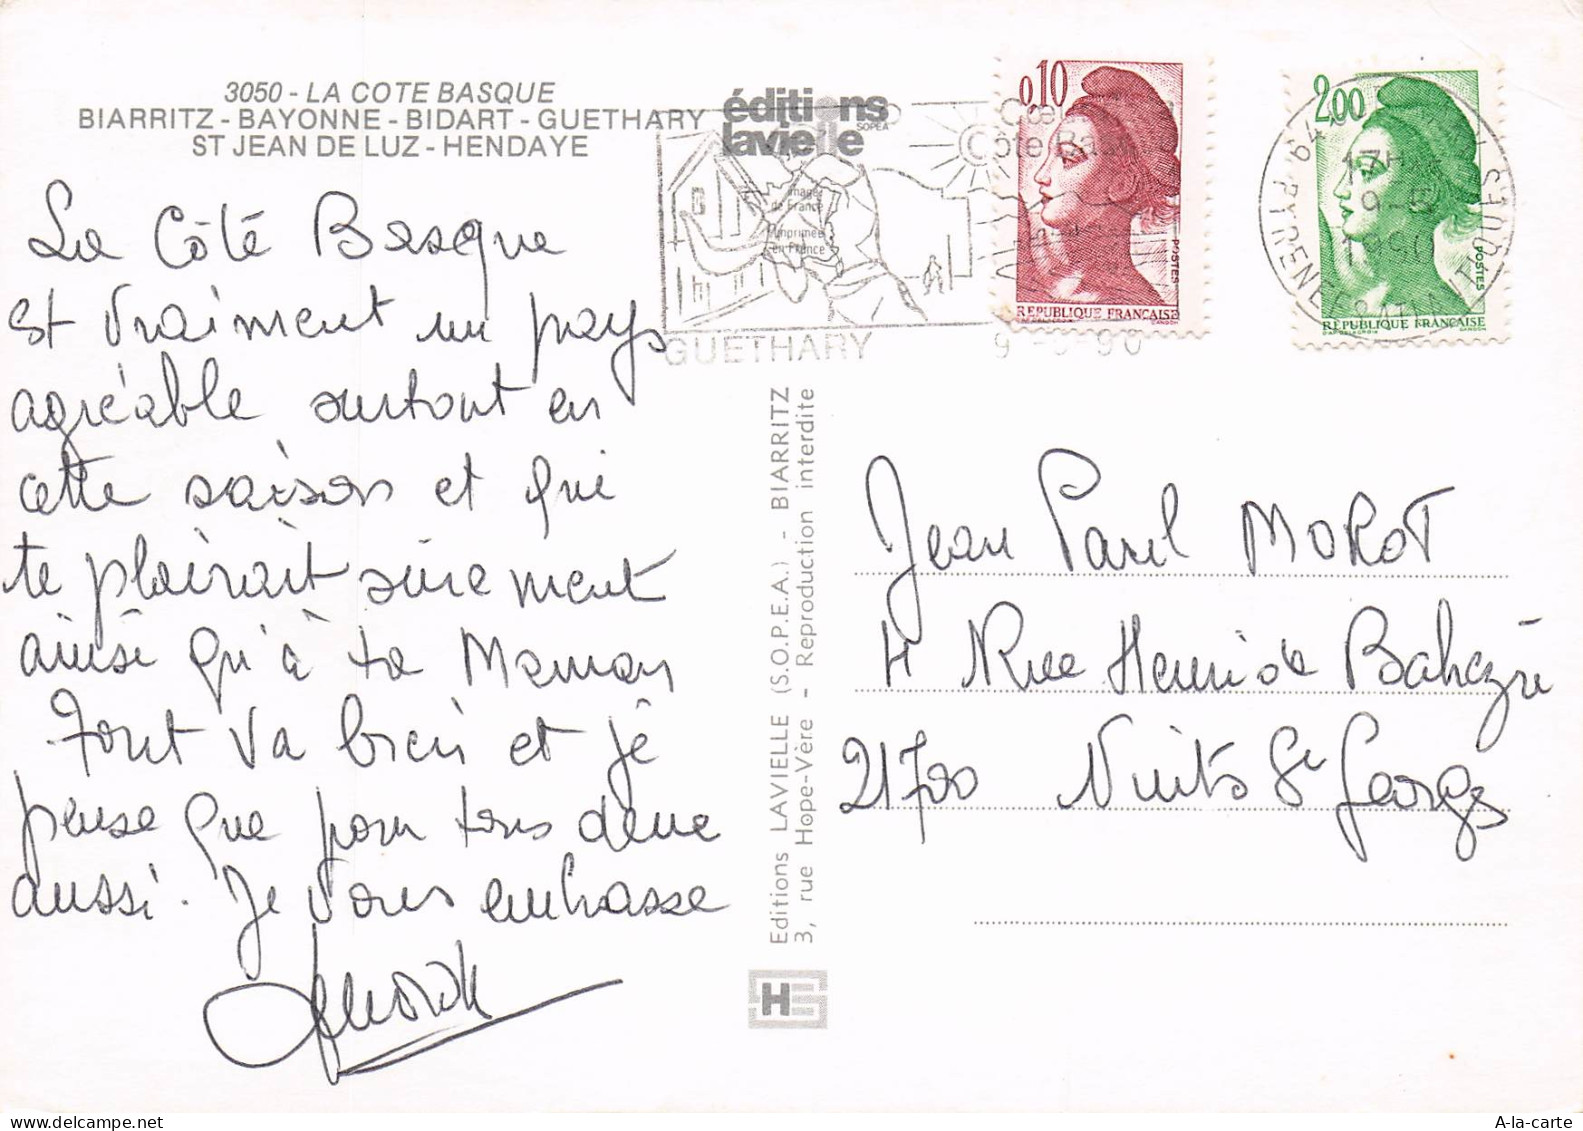 3050 - LA COTE BASQUE
BIARRITZ - BAYONNE - BIDART - GUETHARY
ST JEAN DE LUZ - HENDAYE
La Côte Basque
est vraiment un pays
agréable surtout en
cette saison et qui
te plairait sûrement
ainsi qu'à ta Maman
Tout va bien et je
pense que pour tous deux
aussi. Je vous embrasse
éditions
lavielle
SOPEA
image
de France
imprimée
en France
Côte Basque
GUETHARY
9-5-90
0,10
POSTES
RÉPUBLIQUE FRANÇAISE
GANDON
2,00
POSTES
RÉPUBLIQUE FRANÇAISE
17H
9-5
1990
64 PYRENEES ATLANTIQUES
Editions LAVIELLE (S.O.P.E.A.) - BIARRITZ
3, rue Hope-Vère - Reproduction interdite
Jean Paul MOROT
4 Rue Henri de Bahezre
21700 Nuits St Georges
A-la-carte